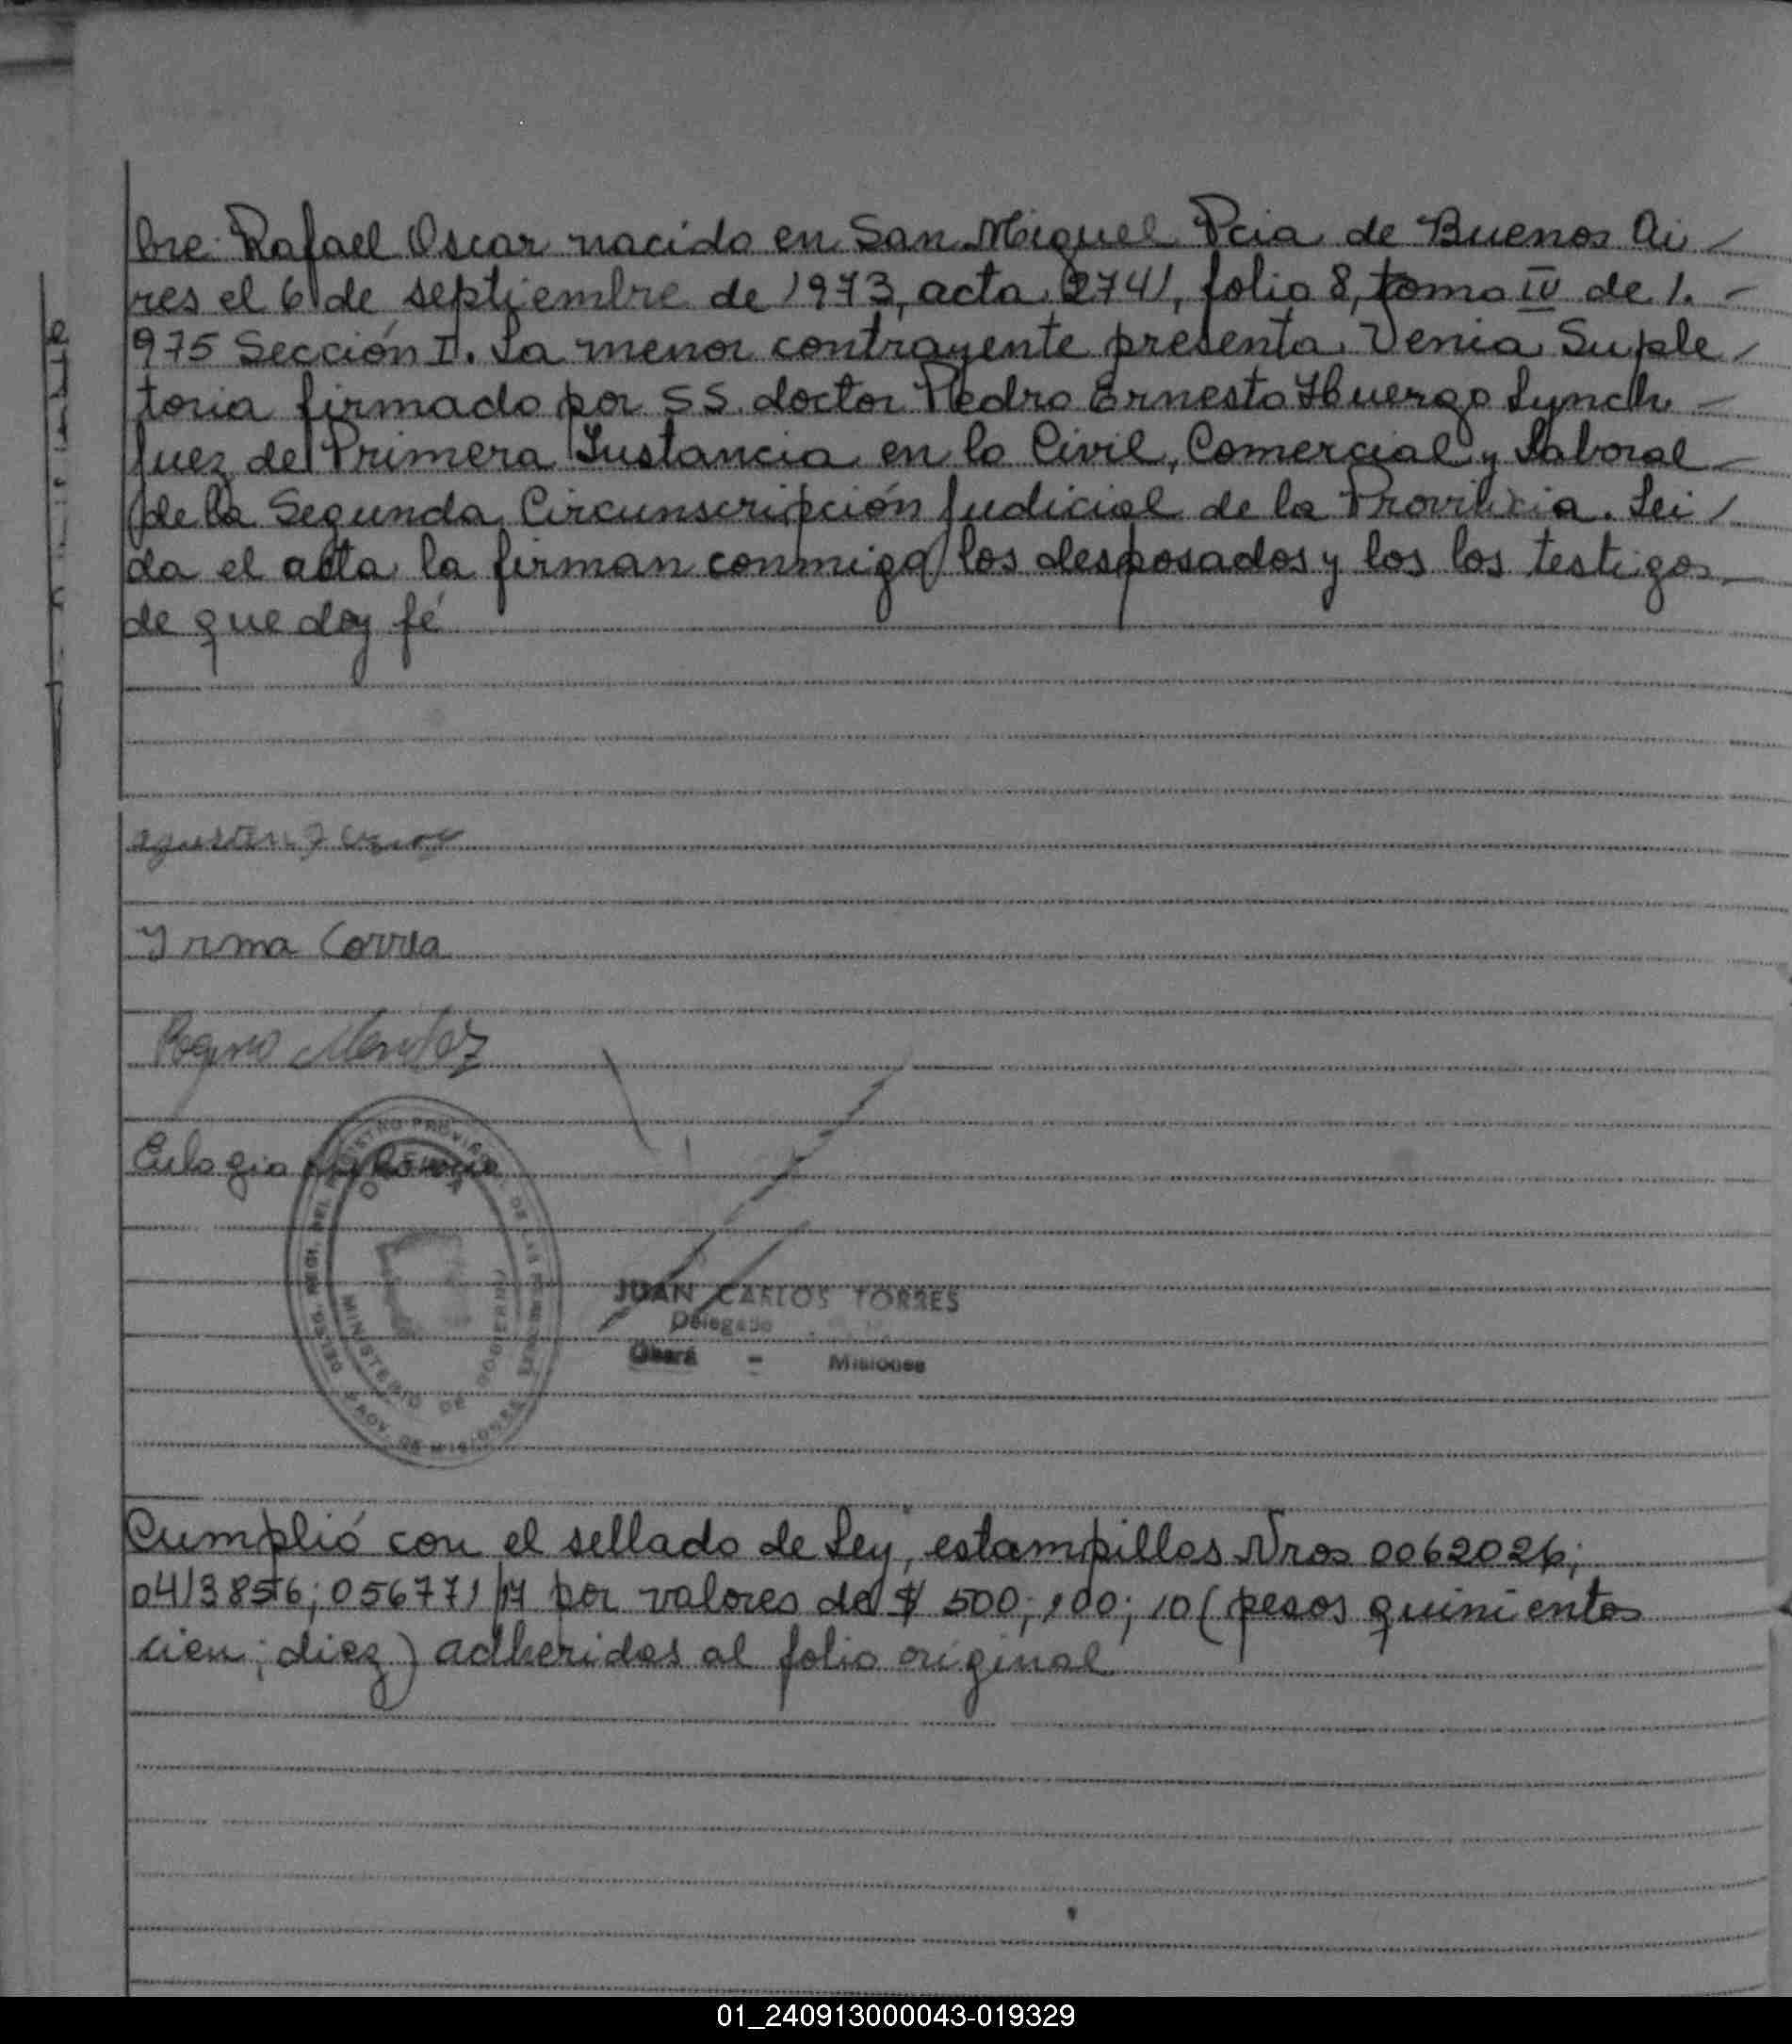 bre: Rafael Oscar nacido en San Miguel Pcia de Buenos Ai
res el 6 de septiembre de 1973, acta 2741, folio 8, tomo IV de 1.
975 Sección II. La menor contrayente presenta Venia Suple
toria firmado por SS. doctor Pedro Ernesto Huergo Lynch
Juez de Primera Instancia en lo Civil, Comercial y Laboral
de la Segunda Circunscripción Judicial de la Provincia. Lei
da el acta la firman conmigo los desposados y los los testigos
de que doy fé
Agustin
Irma Correa
Mendez
Eulogio
MINISTERIO DE GOBIERNO
PROV. DE MISIONES
JUAN CARLOS TORRES
Delegado
Oberá - Misiones
Cumplió con el sellado de Ley, estampillas Nros 0062026;
0413856; 0567711 por valores de $ 500; 100; 10 (pesos quinientos
cien; diez) adheridas al folio original
01_240913000043-019329